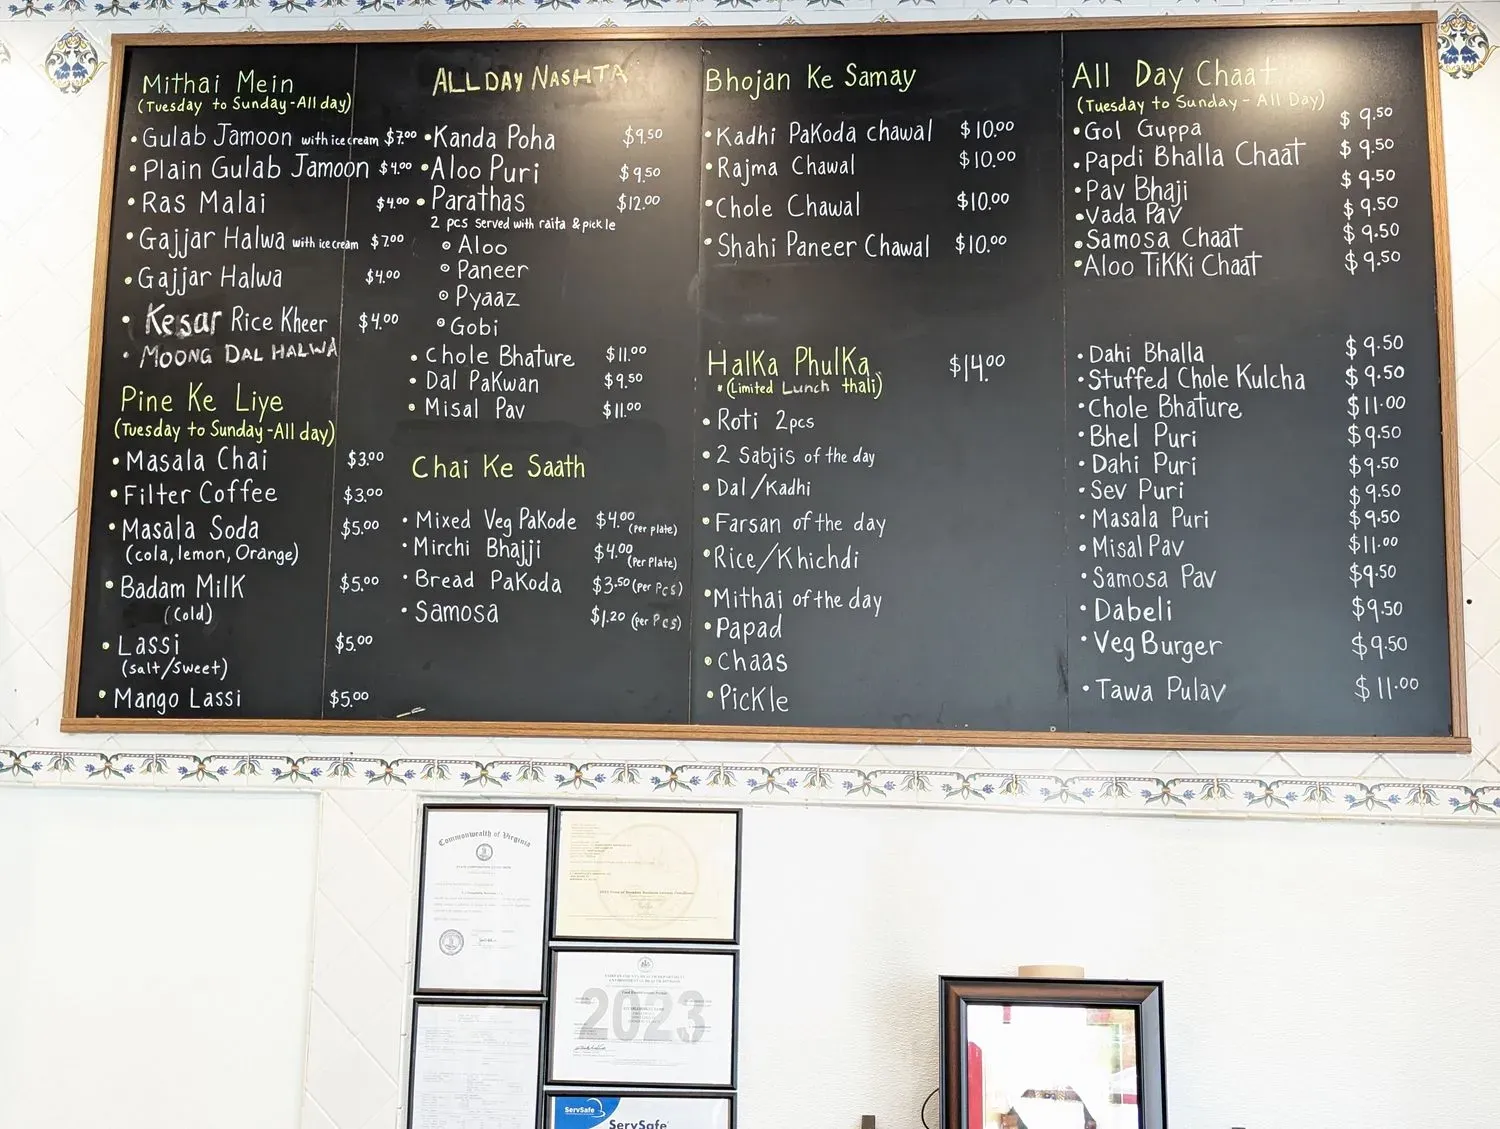 Mithai Mein
(Tuesday to Sunday - All day)
• Gulab Jamoon with ice cream $7.00
• Plain Gulab Jamoon $4.00
• Ras Malai $4.00
• Gajjar Halwa with ice cream $7.00
• Gajjar Halwa $4.00
• Kesar Rice Kheer $4.00
• MOONG DAL HALWA
Pine Ke Liye
(Tuesday to Sunday - All day)
• Masala Chai $3.00
• Filter Coffee $3.00
• Masala Soda $5.00
(cola, lemon, Orange)
• Badam Milk $5.00
(Cold)
• Lassi $5.00
(salt/sweet)
• Mango Lassi $5.00
ALL DAY NASHTA
• Kanda Poha $9.50
• Aloo Puri $9.50
• Parathas $12.00
2 pcs served with raita & pickle
Aloo
Paneer
Pyaaz
Gobi
• Chole Bhature $11.00
• Dal Pakwan $9.50
• Misal Pav $11.00
Chai Ke Saath
• Mixed Veg Pakode $4.00 (per plate)
• Mirchi Bhajji $4.00 (Per Plate)
• Bread Pakoda $3.50 (per Pcs)
• Samosa $1.20 (per Pcs)
Bhojan Ke Samay
• Kadhi Pakoda chawal $10.00
• Rajma Chawal $10.00
• Chole Chawal $10.00
• Shahi Paneer Chawal $10.00
Halka Phulka $14.00
* (Limited Lunch thali)
• Roti 2pcs
• 2 Sabjis of the day
• Dal/Kadhi
• Farsan of the day
• Rice/Khichdi
• Mithai of the day
• Papad
• Chaas
• Pickle
All Day Chaat
(Tuesday to Sunday - All Day)
• Gol Guppa $9.50
• Papdi Bhalla Chaat $9.50
• Pav Bhaji $9.50
• Vada Pav $9.50
• Samosa Chaat $9.50
• Aloo Tikki Chaat $9.50
• Dahi Bhalla $9.50
• Stuffed Chole Kulcha $9.50
• Chole Bhature $11.00
• Bhel Puri $9.50
• Dahi Puri $9.50
• Sev Puri $9.50
• Masala Puri $9.50
• Misal Pav $11.00
• Samosa Pav $9.50
• Dabeli $9.50
• Veg Burger $9.50
• Tawa Pulav $11.00
Commonwealth of Virginia
2023
ServSafe
ServSafe